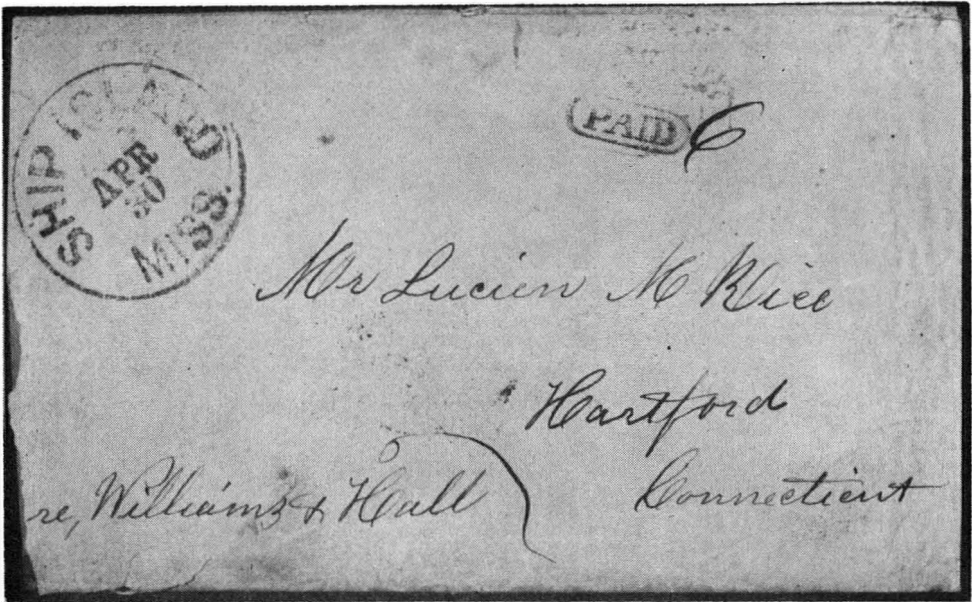 SHIP ISLAND MISS.
APR
30
PAID 6
Mr Lucien M Rice
Hartford
Connecticut
re, Williams & Hall